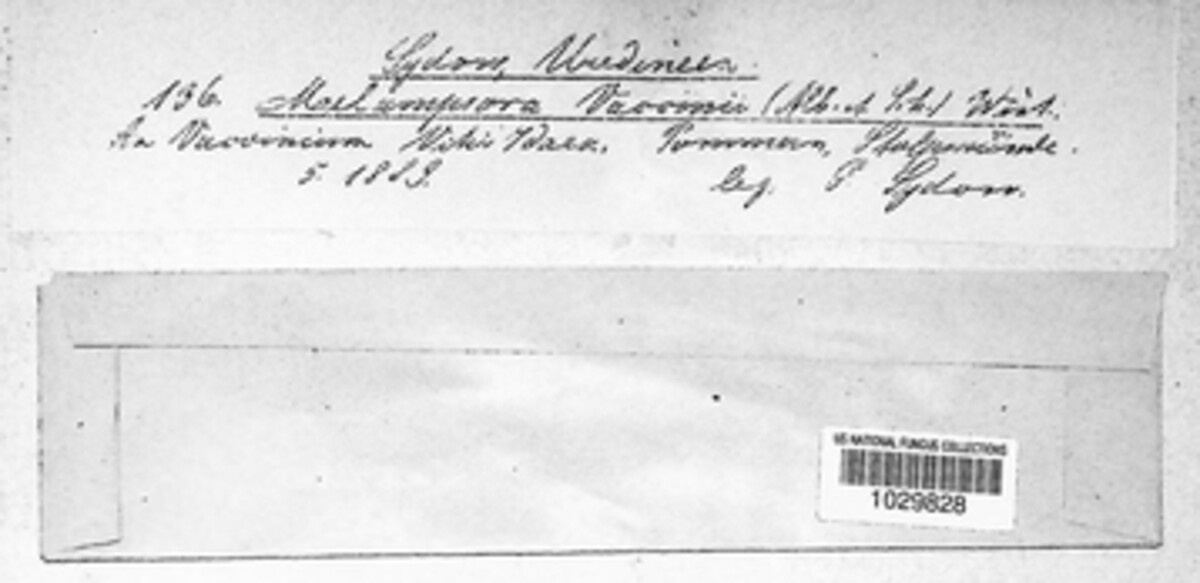 Sydow, Uredineen.
136. Melampsora Vaccinii (Alb. et Sch.) Wint.
An Vaccinium Vitis Idaea. Pommern, Stolpmünde.
5. 1883. leg. P. Sydow.
US NATIONAL FUNGUS COLLECTIONS
1029828